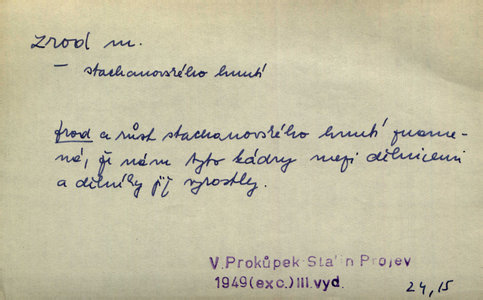 zrod m.
– stachanovského hnutí
zrod a růst stachanovského hnutí zname-
ná, že nám tyto kádry mezi dělnicemi
a dělníky již vyrostly.
V.Prokůpek-Stalin Projev
1949(exc.)III.vyd.
24,15